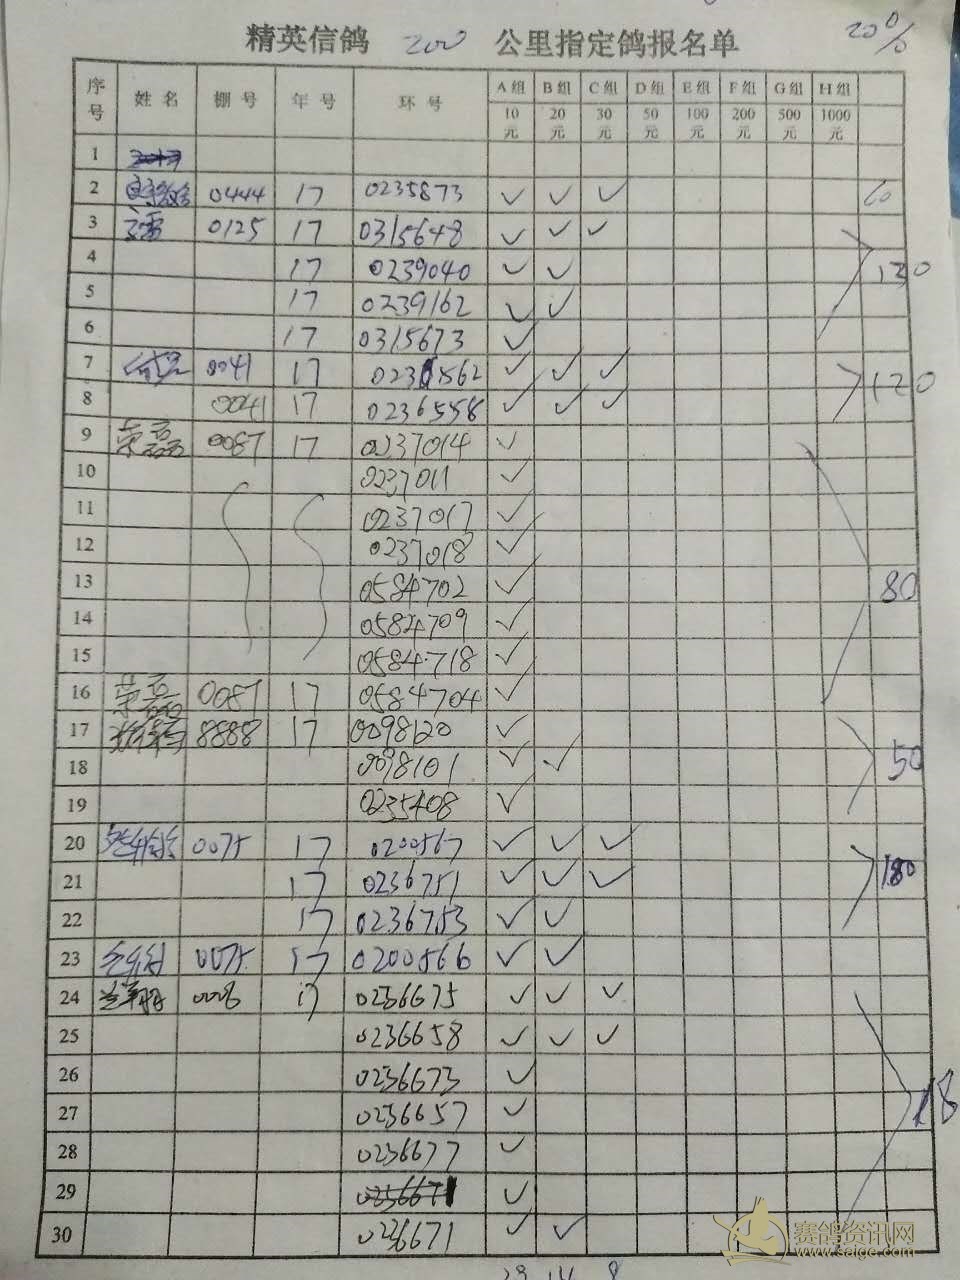 精英信鸽 200 公里指定鸽报名单 20%
序号 姓名 棚号 年号 环号 A组 B组 C组 D组 E组 F组 G组 H组
10元 20元 30元 50元 100元 200元 500元 1000元
1
2 0444 17 0235873 ✓ ✓ ✓ 60
3 0125 17 0315648 ✓ ✓ ✓
4 17 0239040 ✓ ✓ 130
5 17 0239162 ✓ ✓
6 17 0315673 ✓
7 0041 17 0231562 ✓ ✓ ✓
8 0041 17 0236558 ✓ ✓ ✓ 120
9 荣磊 0087 17 0237014 ✓
10 0237011 ✓
11 0237017 ✓
12 0237018 ✓
13 0584702 ✓ 80
14 0584709 ✓
15 0584718 ✓
16 荣磊 0087 17 0584704 ✓
17 8888 17 0098120 ✓
18 0098101 ✓ ✓ 50
19 0235408 ✓
20 0075 17 0200567 ✓ ✓ ✓
21 17 0236751 ✓ ✓ ✓ 180
22 17 0236753 ✓ ✓
23 0075 17 0200566 ✓ ✓
24 0006 17 0236675 ✓ ✓ ✓
25 0236658 ✓ ✓ ✓
26 0236673 ✓
27 0236657 ✓ 18
28 0236677 ✓
29 0236671 ✓
30 0236671 ✓ ✓
赛鸽资讯网
www.saige.com